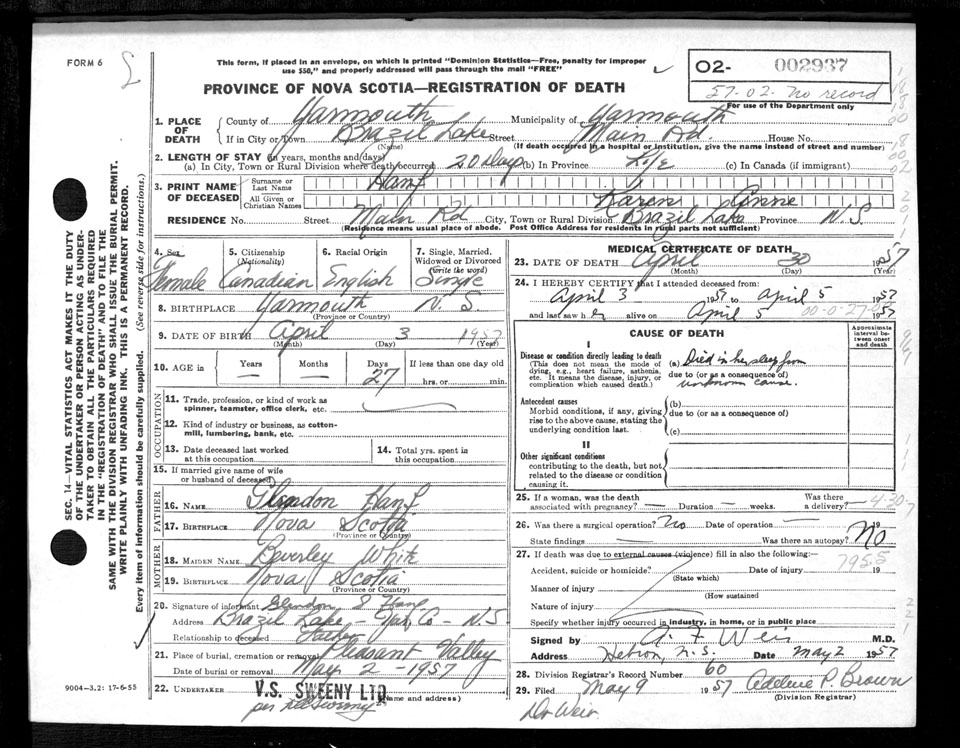 FORM 6
This form, if placed in an envelope, on which is printed "Dominion Statistics—Free, penalty for improper
use $50," and properly addressed will pass through the mail "FREE"
PROVINCE OF NOVA SCOTIA—REGISTRATION OF DEATH
O2- 002937
57-02- No record
For use of the Department only
1. PLACE OF DEATH
County of Yarmouth Municipality of Yarmouth
If in City or Town Brazil Lake Street Main Rd. House No.
(Name) (If death occurred in a hospital or institution, give the name instead of street and number)
2. LENGTH OF STAY (in years, months and days)
(a) In City, Town or Rural Division where death occurred 20 Days (b) In Province Life (c) In Canada (if immigrant)
3. PRINT NAME OF DECEASED
Surname or Last Name Hanf
All Given or Christian Names Karen Anne
RESIDENCE No. Street Main Rd City, Town or Rural Division Brazil Lake Province N.S
(Residence means usual place of abode. Post Office Address for residents in rural parts not sufficient)
4. Sex Female
5. Citizenship (Nationality) Canadian
6. Racial Origin English
7. Single, Married, Widowed or Divorced (write the word) Single
8. BIRTHPLACE Yarmouth N. S.
(Province or Country)
9. DATE OF BIRTH April 3 1957
(Month) (Day) (Year)
10. AGE in Years — Months — Days 27 If less than one day old
hrs. or min.
OCCUPATION
11. Trade, profession, or kind of work as
spinner, teamster, office clerk, etc.
12. Kind of industry or business, as cotton-
mill, lumbering, bank, etc.
13. Date deceased last worked
at this occupation
14. Total yrs. spent in
this occupation
15. If married give name of wife
or husband of deceased
FATHER
16. NAME Glendon Hanf
17. BIRTHPLACE Nova Scotia
(Province or Country)
MOTHER
18. MAIDEN NAME Beverley White
19. BIRTHPLACE Nova Scotia
(Province or Country)
20. Signature of informant Glendon S Hanf
Address Brazil Lake - Yar. Co - N.S
Relationship to deceased Father
21. Place of burial, cremation or removal Pleasant Valley
Date of burial or removal May 2 - 1957
22. UNDERTAKER V.S. SWEENY LTD
(Name and address)
9004—3.2: 17-6-55
MEDICAL CERTIFICATE OF DEATH
23. DATE OF DEATH April 30 1957
(Month) (Day) (Year)
24. I HEREBY CERTIFY that I attended deceased from:
April 3 1957 to April 5 1957
and last saw her alive on April 5 1957
CAUSE OF DEATH
Approximate interval between onset and death
I
Disease or condition directly leading to death
(This does not mean the mode of
dying, e.g., heart failure, asthenia,
etc. It means the disease, injury, or
complication which caused death.)
(a) Died in her sleep from
due to (or as a consequence of)
unknown cause.
Antecedent causes
Morbid conditions, if any, giving
rise to the above cause, stating the
underlying condition last.
(b)
due to (or as a consequence of)
(c)
II
Other significant conditions
contributing to the death, but not
related to the disease or condition
causing it.
25. If a woman, was the death
associated with pregnancy? Duration weeks. Was there a delivery?
4-30-7
26. Was there a surgical operation? No Date of operation — 19
State findings — Was there an autopsy? No
27. If death was due to external causes (violence) fill in also the following:
795.5
Accident, suicide or homicide? Date of injury 19
(State which)
Manner of injury
(How sustained
Nature of injury
Specify whether injury occurred in industry, in home, or in public place
Signed by A. F Weir M.D.
Address Hebron, N.S. Date May 2 1957
28. Division Registrar's Record Number 60
29. Filed May 9 1957 Adelene P. Brown
(Division Registrar)
Dr Weir
SEC. 14—VITAL STATISTICS ACT MAKES IT THE DUTY
OF THE UNDERTAKER OR PERSON ACTING AS UNDER-
TAKER TO OBTAIN ALL THE PARTICULARS REQUIRED
IN THE "REGISTRATION OF DEATH" AND TO FILE THE
SAME WITH THE DIVISION REGISTRAR WHO SHALL ISSUE THE BURIAL PERMIT.
WRITE PLAINLY WITH UNFADING INK. THIS IS A PERMANENT RECORD.
Every item of information should be carefully supplied. (See reverse side for instructions.)